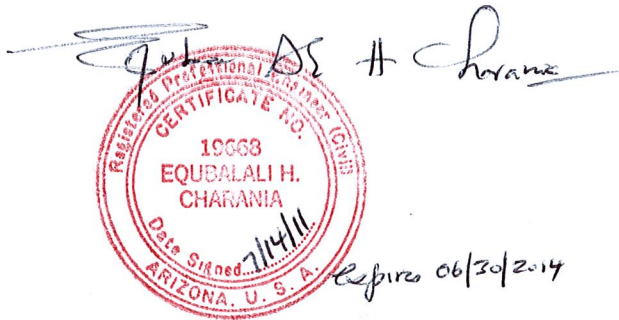 Equbal Ali H Charania
Registered Professional Engineer (Civil)
CERTIFICATE NO.
19668
EQUBALALI H.
CHARANIA
Date Signed...7/14/11
ARIZONA, U. S. A.
Expires 06/30/2014